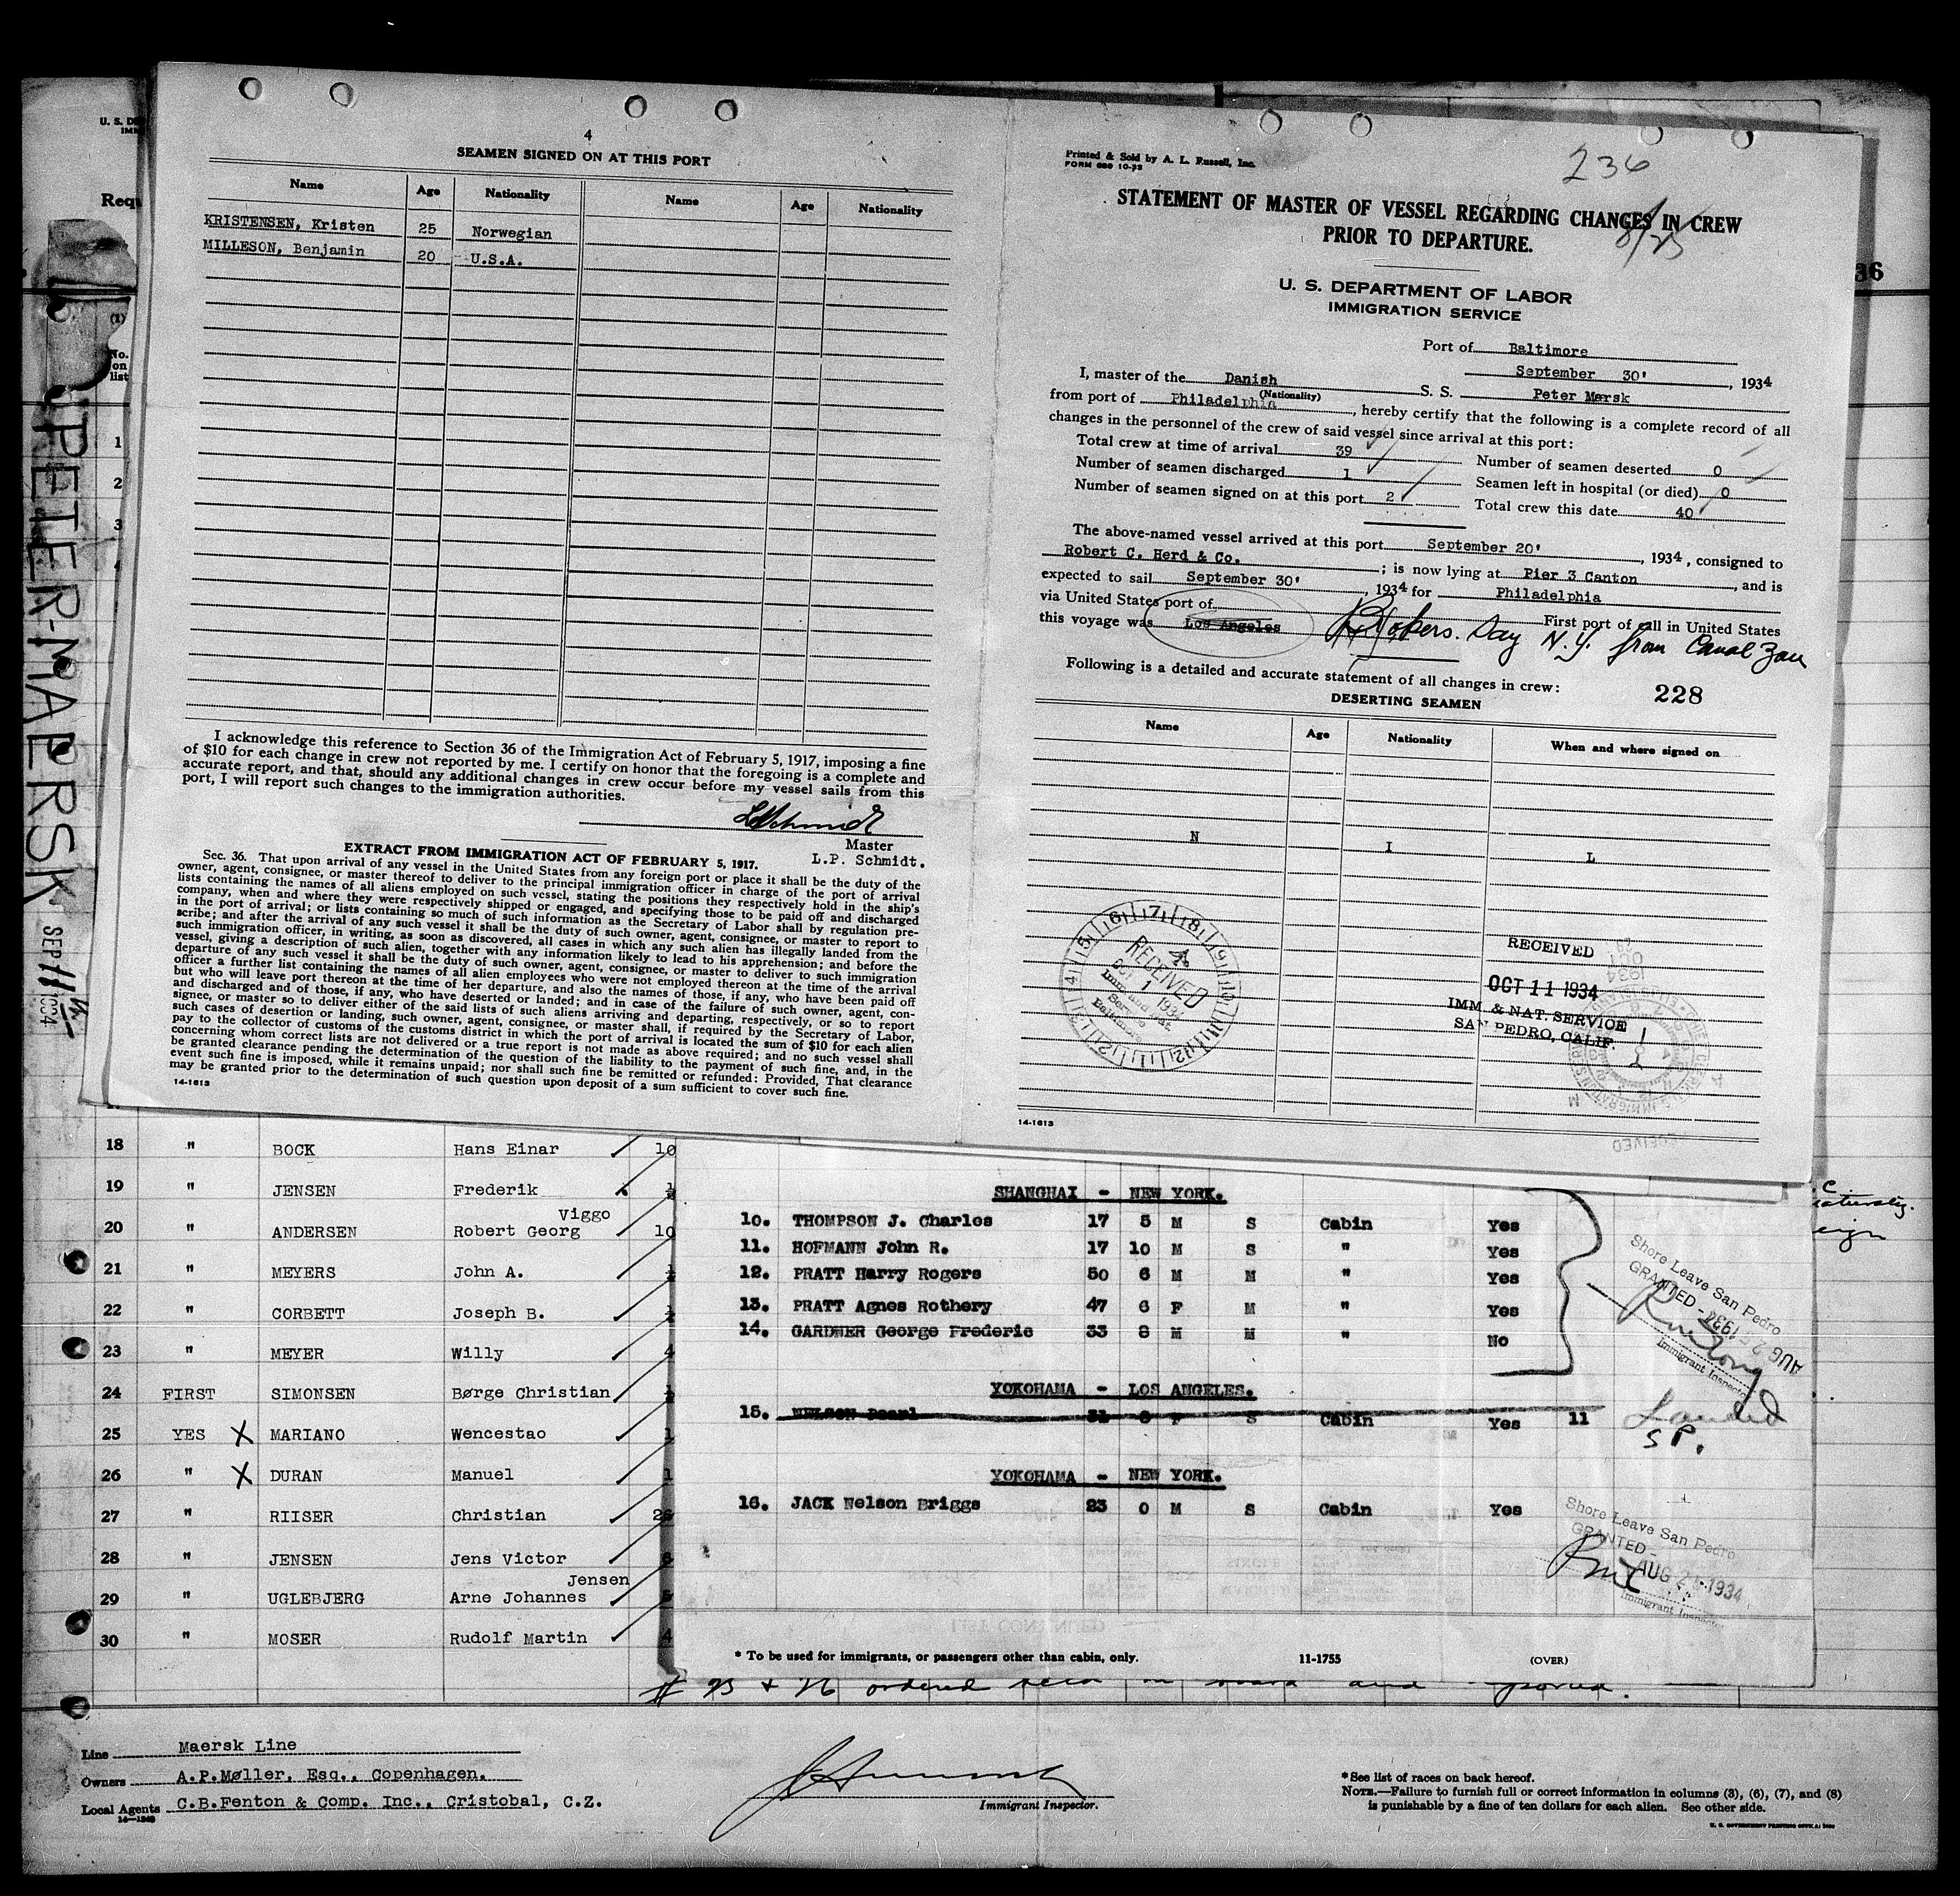 U. S. D
IM
Requ
(1)
No.
on
list
1
2
3
PETER-MAERSK
SEP 11 1934
36
4
SEAMEN SIGNED ON AT THIS PORT
Name Age Nationality Name Age Nationality
KRISTENSEN, Kristen 25 Norwegian
MILLESON, Benjamin 20 U.S.A.
I acknowledge this reference to Section 36 of the Immigration Act of February 5, 1917, imposing a fine
of $10 for each change in crew not reported by me. I certify on honor that the foregoing is a complete and
accurate report, and that, should any additional changes in crew occur before my vessel sails from this
port, I will report such changes to the immigration authorities.
LPSchmidt
Master
L.P. Schmidt.
EXTRACT FROM IMMIGRATION ACT OF FEBRUARY 5, 1917.
Sec. 36. That upon arrival of any vessel in the United States from any foreign port or place it shall be the duty of the
owner, agent, consignee, or master thereof to deliver to the principal immigration officer in charge of the port of arrival
lists containing the names of all aliens employed on such vessel, stating the positions they respectively hold in the ship's
company, when and where they were respectively shipped or engaged, and specifying those to be paid off and discharged
in the port of arrival; or lists containing so much of such information as the Secretary of Labor shall by regulation pre-
scribe; and after the arrival of any such vessel it shall be the duty of such owner, agent, consignee, or master to report to
such immigration officer, in writing, as soon as discovered, all cases in which any such alien has illegally landed from the
vessel, giving a description of such alien, together with any information likely to lead to his apprehension; and before the
departure of any such vessel it shall be the duty of such owner, agent, consignee, or master to deliver to such immigration
officer a further list containing the names of all alien employees who were not employed thereon at the time of the arrival
but who will leave port thereon at the time of her departure, and also the names of those, if any, who have been paid off
and discharged and of those, if any, who have deserted or landed; and in case of the failure of such owner, agent, con-
signee, or master so to deliver either of the said lists of such aliens arriving and departing, respectively, or so to report
such cases of desertion or landing, such owner, agent, consignee, or master shall, if required by the Secretary of Labor,
pay to the collector of customs of the customs district in which the port of arrival is located the sum of $10 for each alien
concerning whom correct lists are not delivered or a true report is not made as above required; and no such vessel shall
be granted clearance pending the determination of the question of the liability to the payment of such fine, and, in the
event such fine is imposed, while it remains unpaid; nor shall such fine be remitted or refunded: Provided, That clearance
may be granted prior to the determination of such question upon deposit of a sum sufficient to cover such fine.
14-1613
Printed & Sold by A. L. Russell, Inc.
FORM 689 10-33
236
STATEMENT OF MASTER OF VESSEL REGARDING CHANGES IN CREW
PRIOR TO DEPARTURE.
U. S. DEPARTMENT OF LABOR
IMMIGRATION SERVICE
Port of Baltimore
September 30' , 1934
I, master of the Danish S. S. Peter Mærsk
(Nationality)
from port of Philadelphia, hereby certify that the following is a complete record of all
changes in the personnel of the crew of said vessel since arrival at this port:
Total crew at time of arrival 39 Number of seamen deserted 0
Number of seamen discharged 1 Seamen left in hospital (or died) 0
Number of seamen signed on at this port 2 Total crew this date 40
The above-named vessel arrived at this port September 20' , 1934, consigned to
Robert C. Herd & Co. ; is now lying at Pier 3 Canton , and is
expected to sail September 30' , 1934 for Philadelphia
via United States port of First port of call in United States
this voyage was Los Angeles N.Y. from Canal Zone
Following is a detailed and accurate statement of all changes in crew:
228
DESERTING SEAMEN
Name Age Nationality When and where signed on
N I L
RECEIVED
OCT 1 1934
RECEIVED
OCT 11 1934
IMM. & NAT. SERVICE
SAN PEDRO, CALIF.
14-1613
18 " BOCK Hans Einar 10
19 " JENSEN Frederik
20 " ANDERSEN Viggo Robert Georg 10
21 " MEYERS John A.
22 " CORBETT Joseph B.
23 " MEYER Willy 4
24 FIRST SIMONSEN Børge Christian
25 YES X MARIANO Wencestao 1
26 " X DURAN Manuel 1
27 " RIISER Christian
28 " JENSEN Jens Victor
29 " UGLEBJERG Jensen Arne Johannes
30 " MOSER Rudolf Martin 4
SHANGHAI - NEW YORK.
10. THOMPSON J. Charles 17 5 M S Cabin Yes
11. HOFMANN John R. 17 10 M S " Yes
12. PRATT Harry Rogers 50 6 M M " Yes
13. PRATT Agnes Rothery 47 6 F M " Yes
14. GARDNER George Frederic 33 8 M M " No
Shore Leave San Pedro
GRANTED - AUG 1934
Immigrant Inspector
YOKOHAMA - LOS ANGELES.
15. NELSON Pearl 31 8 F S Cabin Yes 11
Landed
S P.
YOKOHAMA - NEW YORK.
16. JACK Nelson Briggs 23 0 M S Cabin Yes
Shore Leave San Pedro
GRANTED -
AUG 1934
Immigrant Inspector
* To be used for immigrants, or passengers other than cabin, only. 11-1755 (OVER)
# 25 & 26 ordered held on board and
Line Maersk Line
Owners A.P.Møller, Esq., Copenhagen.
Local Agents C.B.Fenton & Comp. Inc., Cristobal, C.Z.
14-1248
Immigrant Inspector.
* See list of races on back hereof.
NOTE.—Failure to furnish full or correct information in columns (3), (6), (7), and (8)
is punishable by a fine of ten dollars for each alien. See other side.